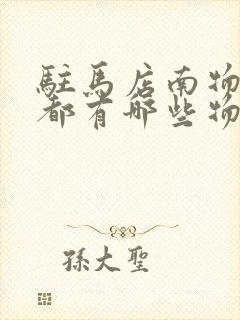 駐馬店南物
都有哪些物
孫大聖